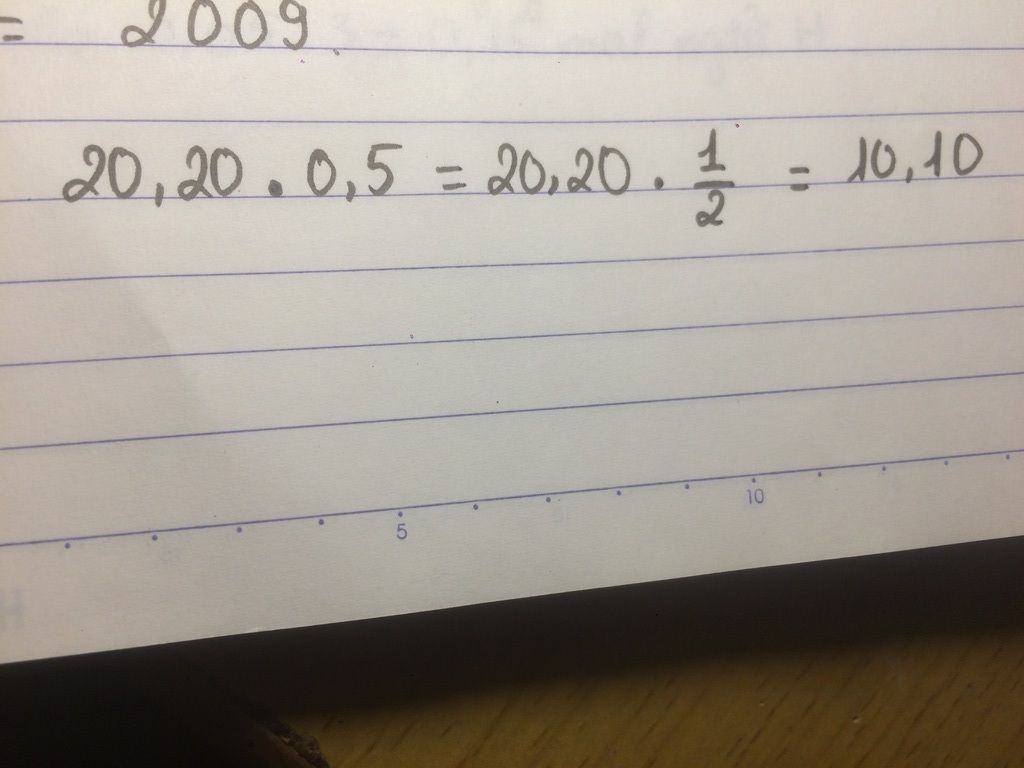 = 2009
20,20 . 0,5 = 20,20 . 1/2 = 10,10
5 10